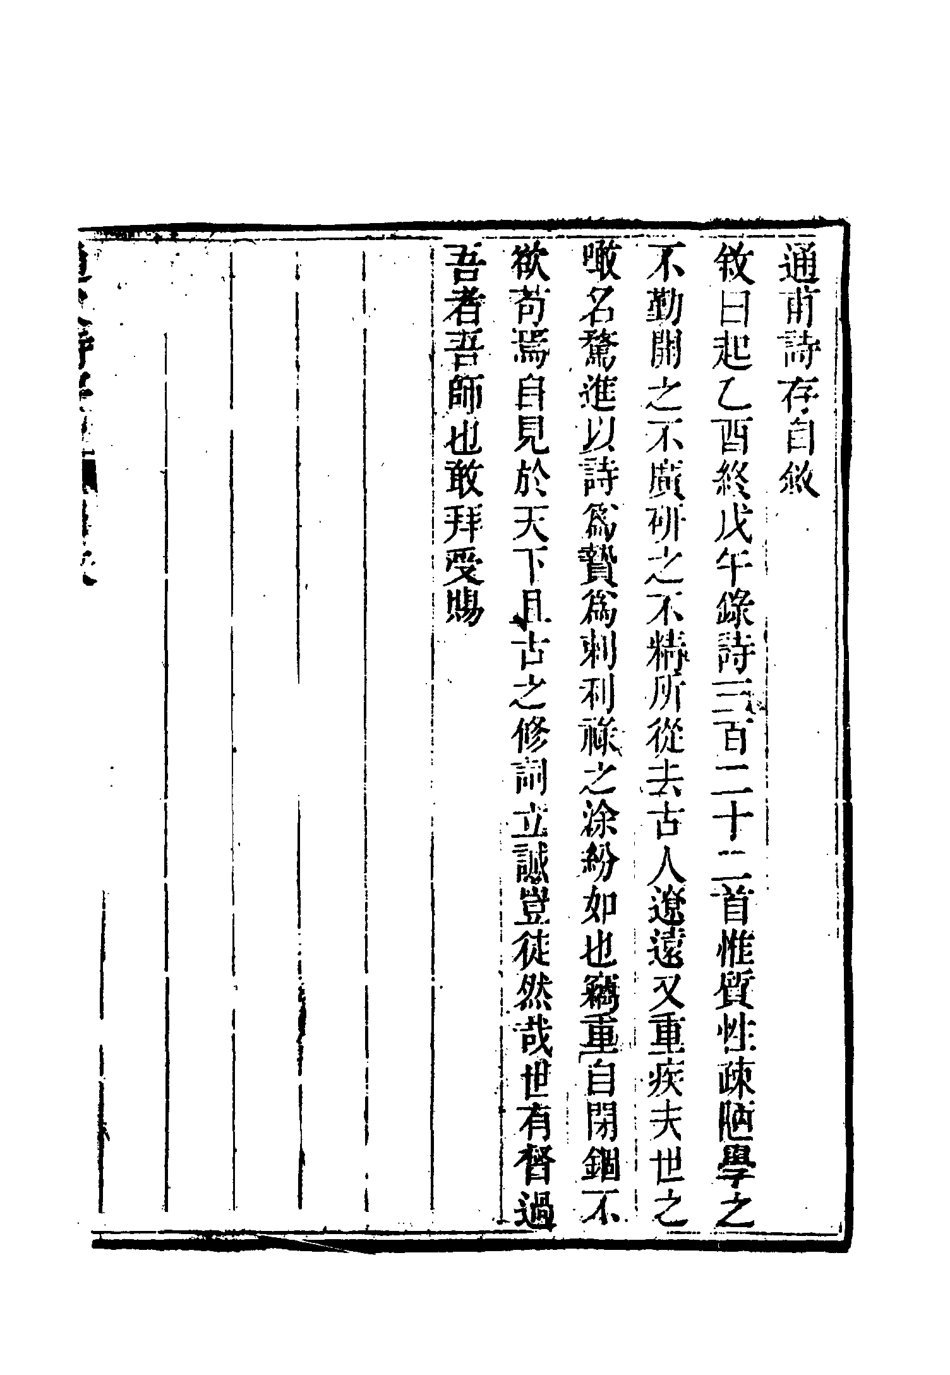 通甫詩存自敘
敘曰起乙酉終戊午錄詩三百二十二首惟質性疎陋學之
不勤開之不廣硏之不精所從去古人遼遠又重疾夫世之
噉名騖進以詩爲贄爲刺利祿之涂紛如也竊重自閉錮不
欲苟焉自見於天下且古之修詞立誠豈徒然哉世有督過
吾者吾師也敢拜受賜